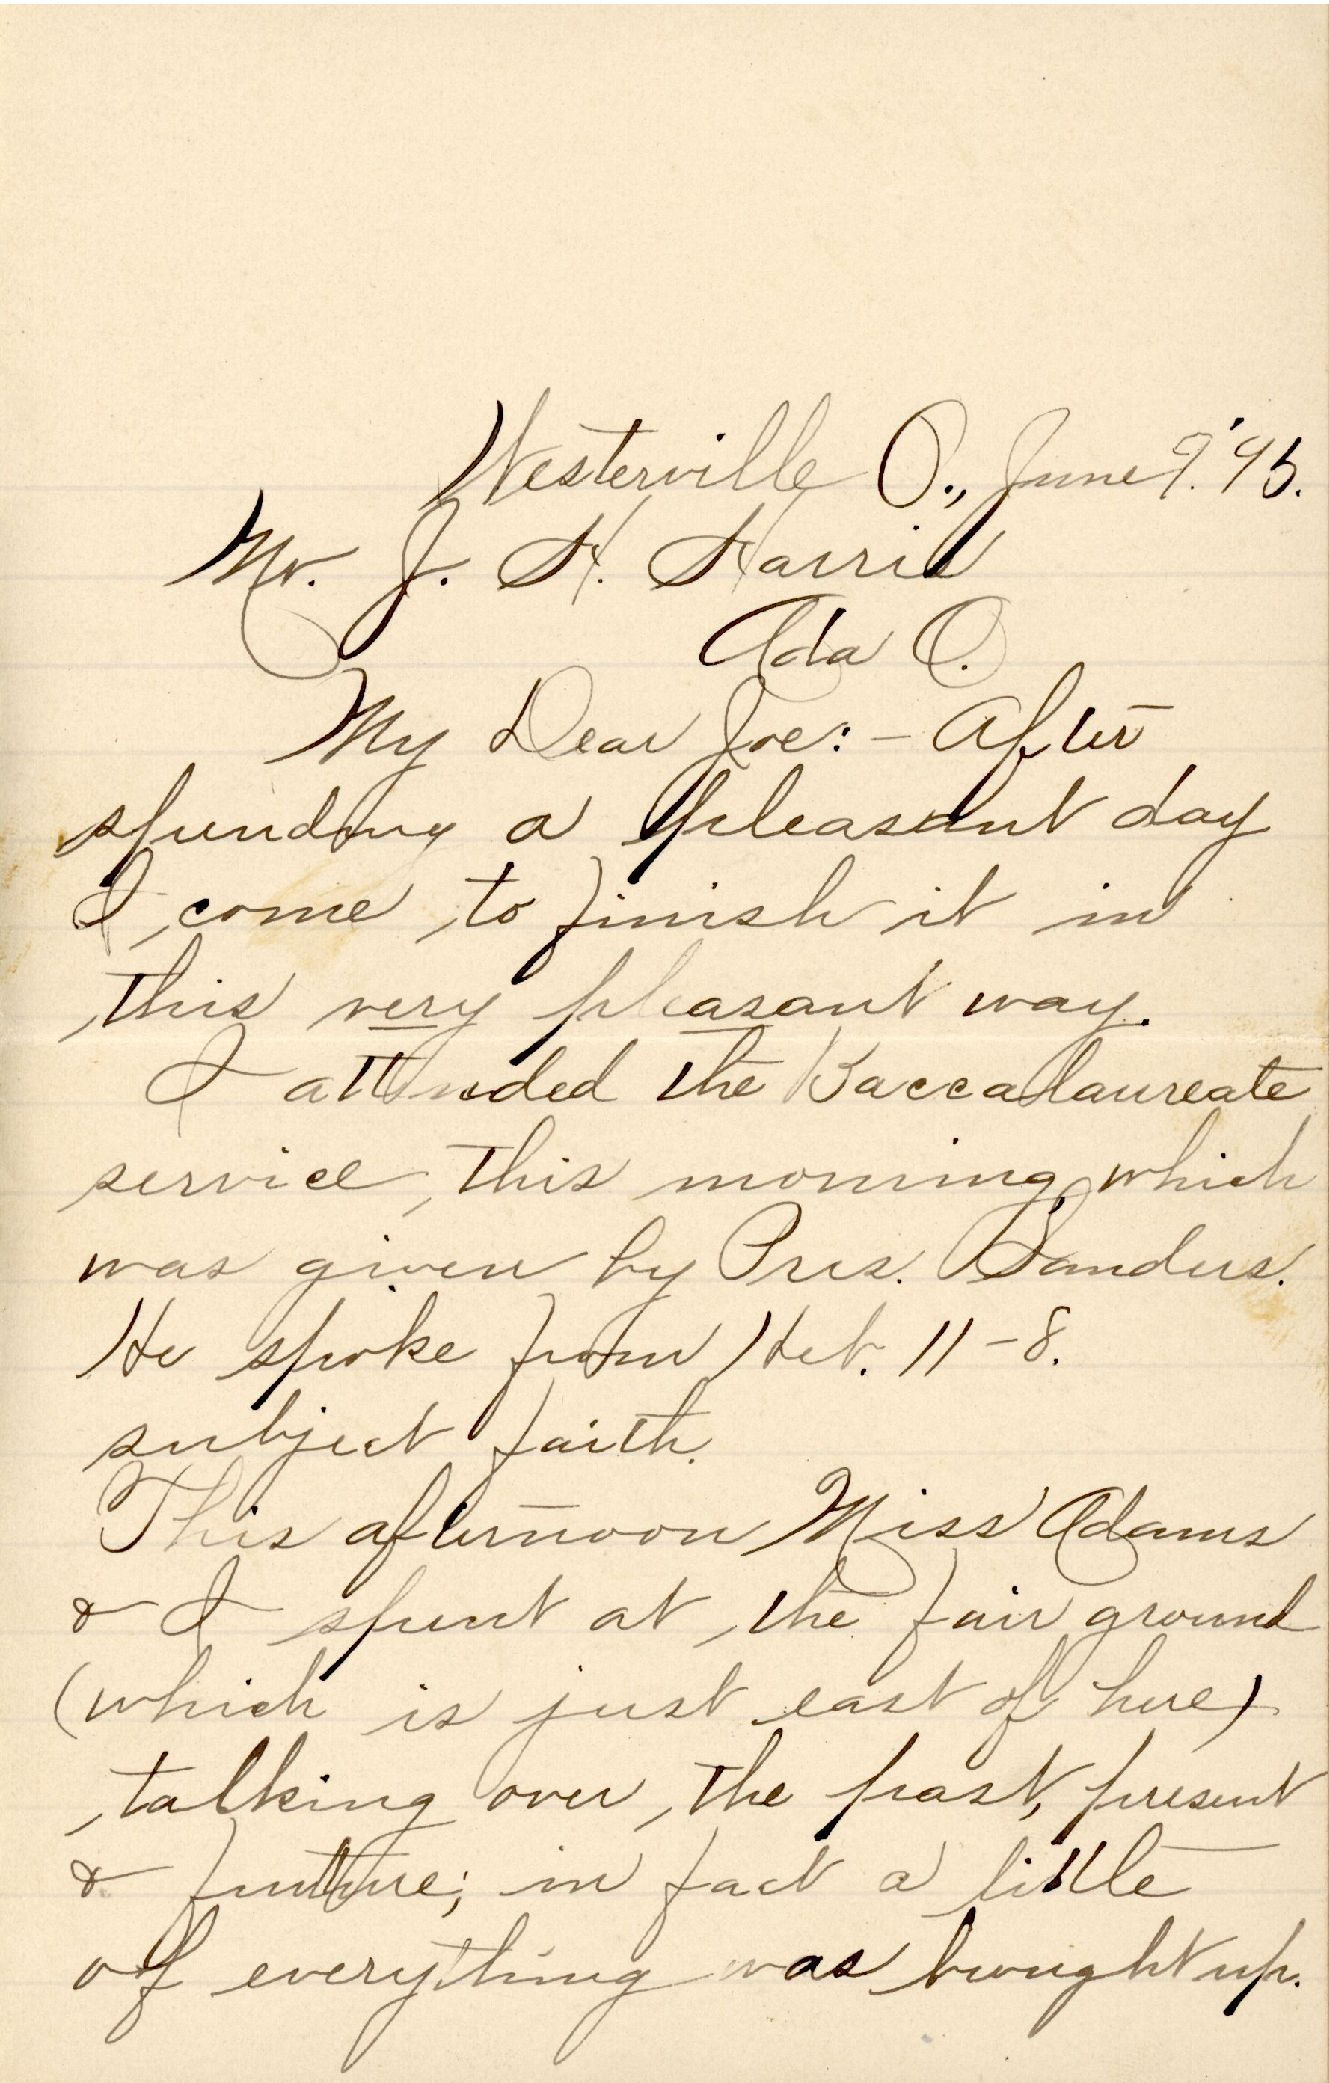 Westerville O., June 9. '95.
Mr. J. H. Harris
Ada O.
My Dear Joe: - After
spending a pleasant day
I come to finish it in
this very pleasant way.
I attended the Baccalaureate
service this morning which
was given by Pres. Sanders.
He spoke from Heb. 11-8.
subject faith.
This afternoon Miss Adams
& I spent at the fair ground
(which is just east of here)
talking over the past, present
& future; in fact a little
of everything was brought up.